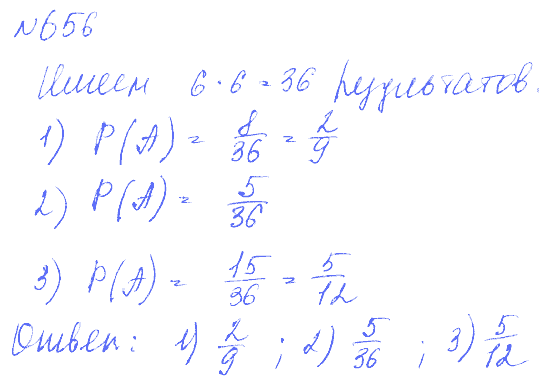 №656
Имеем 6 · 6 = 36 результатов.
1) P(A) = 8/36 = 2/9
2) P(A) = 5/36
3) P(A) = 15/36 = 5/12
Ответ: 1) 2/9 ; 2) 5/36 ; 3) 5/12